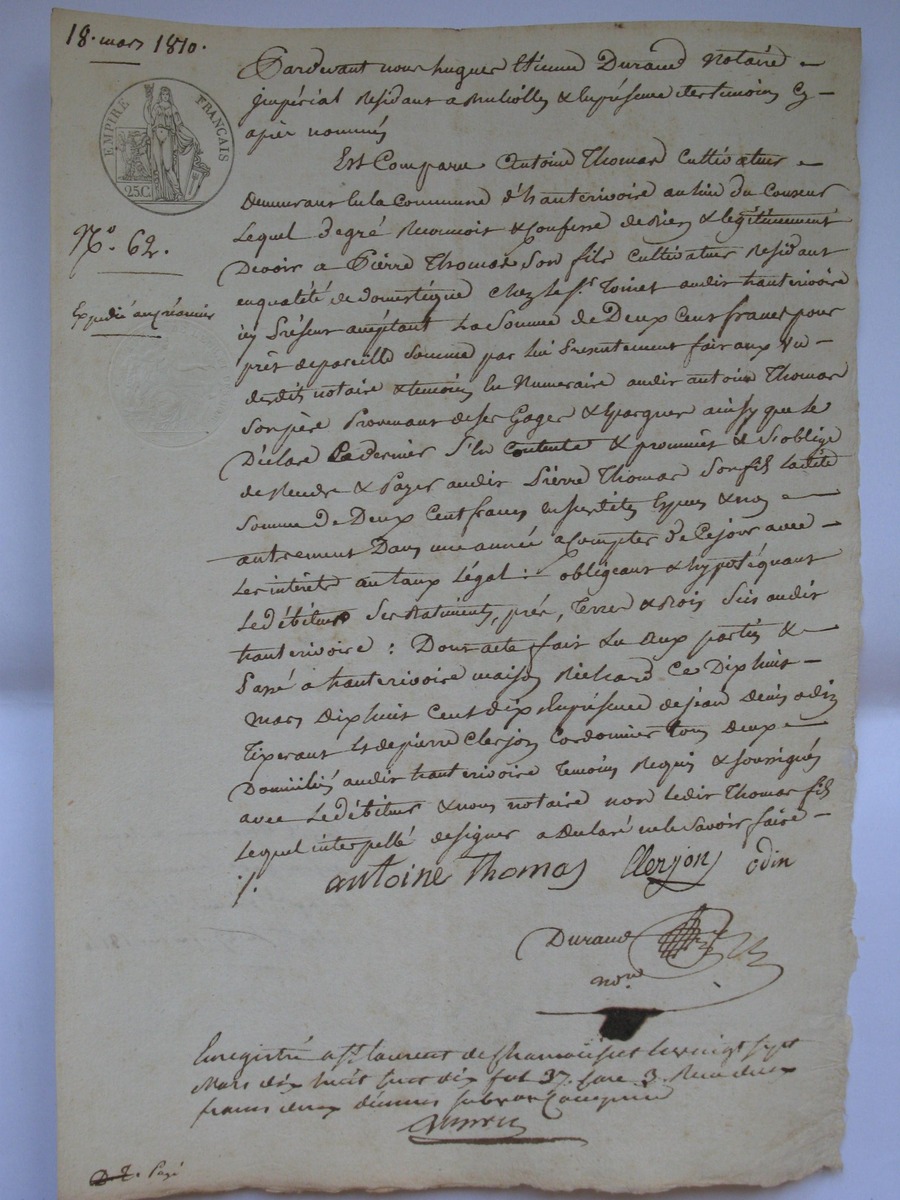 18. mars 1810.
EMPIRE FRANÇAIS
25C.
N.o 62.
Expédié au créancier
Pardevant nous hugues Etienne Durand Notaire
impérial Résidant a Bruliolles & En présence des temoins Cy
après nommés
Est Comparu Antoine Thomas Cultivateur
Demeurant En la Commune d'hauterivoire au lieu du
Lequel de gré Reconnoit & Confesse de bien & légitimement
Devoir a Pierre Thomas Son fils Cultivateur Résidant
en qualité de domestique chez le Sr. audit hauterivoire
ici Présent acceptant La Somme de Deux Cent francs pour
prêt de pareille Somme par lui Presentement fait aux vu
desdits notaire & temoins En Numeraire audit antoine Thomas
Son père Provenant de ses Gages & Epargnes ainsy que le
Déclare Ce dernier S'en Contente & prommet & S'oblige
de Rendre & Payer audit Pierre Thomas Son fils Ladite
Somme de Deux Cent francs en Espèces & non
autrement Dans une année a Compter de Ce jour avec
Les intérêts au taux Légal : obligeant & hypotéquant
Le débiteur Ses Batiments, prés, Terres & Bois Sis audit
hauterivoire : Dont acte fait Lu aux parties &
Passé a hauterivoire maison Richard Ce Dix huit
Mars Dix huit Cent dix En présence de jean Denis odin
Tixerant Et de pierre Clerjon Cordonnier tous Deux
Domiciliés audit hauterivoire Temoins Requis & soussignés
avec Le débiteur & nous notaire non Ledit Thomas fils
Lequel interpellé de signer a Déclaré ne le Savoir faire
antoine Thomas Clerjon odin
Durand
nore
Enregistré a St. laurent de chamousset le vingt sept
Mars dix huit cent dix fol 37. Case 3. Recu deux
francs deux décimes subvention Comprise
Payé